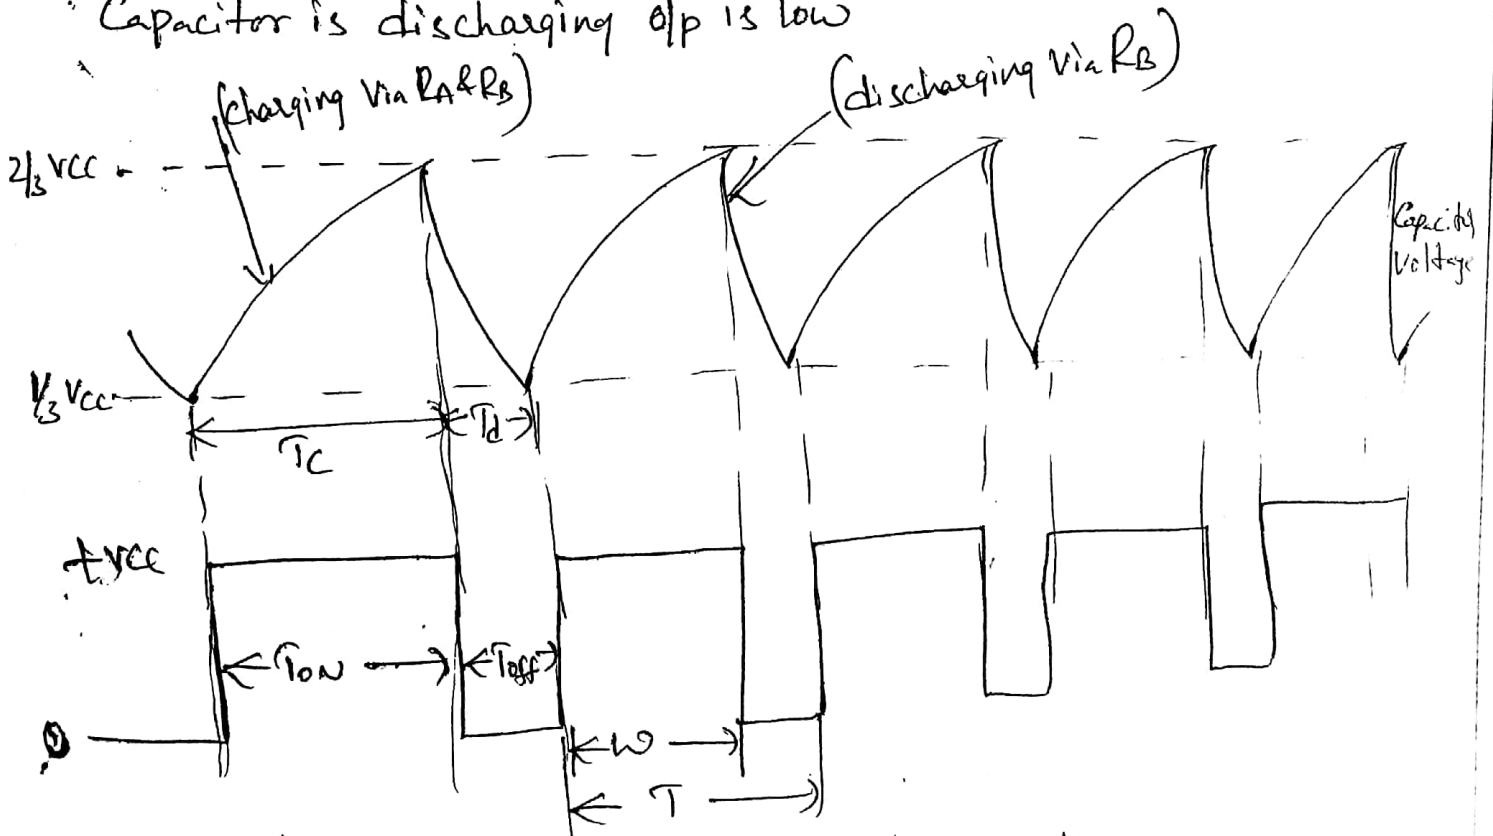 Capacitor is discharging o/p is low
(charging via RA & RB)
(discharging via RB)
2/3 VCC
Capacitor
Voltage
1/3 VCC
TC
Td
+VCC
TON
Toff
0
W
T